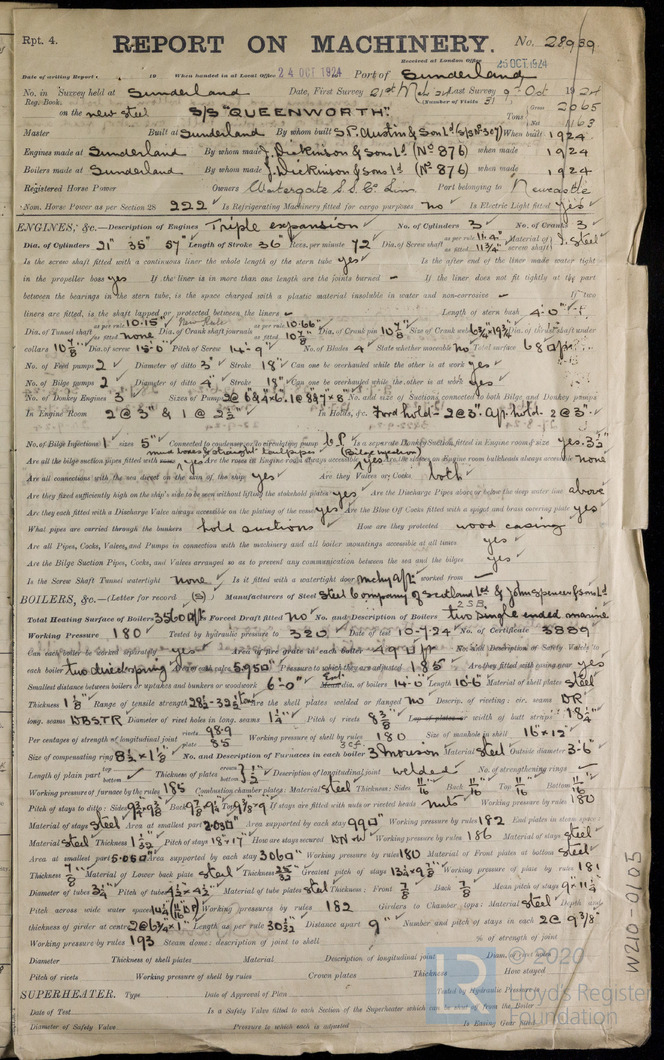 Rpt. 4.
REPORT ON MACHINERY.
No. 28939
Received at London Office 25 OCT 1924
Date of writing Report 19 When handed in at Local Office 24 OCT 1924 Port of Sunderland
No. in Survey held at Sunderland Date, First Survey 21st Last Survey 9 Oct 1924
Reg. Book. (Number of Visits 31
on the new steel S/S "QUEENWORTH" Tons Gross 2065
Net 1163
Master Built at Sunderland By whom built S.P. Austin & Son Ld When built 1924
Engines made at Sunderland By whom made J. Dickinson & Sons Ld (No 876) when made 1924
Boilers made at Sunderland By whom made J. Dickinson & Sons Ld (No 876) when made 1924
Registered Horse Power Owners Watergate S.S. Co Lim. Port belonging to Newcastle
Nom. Horse Power as per Section 28 222 Is Refrigerating Machinery fitted for cargo purposes No Is Electric Light fitted yes
ENGINES, &c.—Description of Engines Triple expansion No. of Cylinders 3 No. of Cranks 3
Dia. of Cylinders 21" 35" 57" Length of Stroke 36" Revs. per minute 72 Dia. of Screw shaft as per rule 11.4" as fitted 11¾" Material of screw shaft Steel
Is the screw shaft fitted with a continuous liner the whole length of the stern tube yes Is the after end of the liner made water tight
in the propeller boss yes If the liner is in more than one length are the joints burned - If the liner does not fit tightly at the part
between the bearings in the stern tube, is the space charged with a plastic material insoluble in water and non-corrosive - If two
liners are fitted, is the shaft lapped or protected between the liners - Length of stern bush 4-0
Dia. of Tunnel shaft as per rule 10.15" as fitted none Dia. of Crank shaft journals as per rule 10.66" as fitted 10⅞ Dia. of Crank pin 10⅞ Size of Crank webs Dia. of thrust shaft under
collars 10⅞ Dia. of screw 15-0 Pitch of Screw 14-9" No. of Blades 4 State whether moveable no Total surface 68
No. of Feed pumps 2 Diameter of ditto 3" Stroke 18" Can one be overhauled while the other is at work yes
No. of Bilge pumps 2 Diameter of ditto 4" Stroke 18" Can one be overhauled while the other is at work yes
No. of Donkey Engines 3 Sizes of Pumps No. and size of Suctions connected to both Bilge and Donkey pumps
In Engine Room 2 @ 3" & 1 @ 2½" In Holds, &c. Ford hold - 2 @ 3". Aft hold - 2 @ 3".
No. of Bilge Injections 1 sizes 5" Connected to condenser, or to circulating pump C.P. Is a separate Donkey Suction fitted in Engine room & size yes. 3½"
Are all the bilge suction pipes fitted with mud boxes & straight tail pipes yes Are the roses in Engine room always accessible yes none
Are all connections with the sea direct on the skin of the ship yes Are they Valves or Cocks both
Are they fixed sufficiently high on the ship's side to be seen without lifting the stokehold plates yes Are the Discharge Pipes above or below the deep water line above
Are they each fitted with a Discharge Valve always accessible on the plating of the vessel yes Are the Blow Off Cocks fitted with a spigot and brass covering plate yes
What pipes are carried through the bunkers hold suctions How are they protected wood casing
Are all Pipes, Cocks, Valves, and Pumps in connection with the machinery and all boiler mountings accessible at all times yes
Are the Bilge Suction Pipes, Cocks, and Valves arranged so as to prevent any communication between the sea and the bilges yes
Is the Screw Shaft Tunnel watertight None Is it fitted with a watertight door mchy aft worked from -
BOILERS, &c.—(Letter for record (S)) Manufacturers of Steel Steel Company of Scotland Ltd & John Spencer & Sons Ld
Total Heating Surface of Boilers 3560 Is Forced Draft fitted no No. and Description of Boilers two single ended marine
Working Pressure 180 Tested by hydraulic pressure to 320 Date of test 10-7-24 No. of Certificate 3889
Can each boiler be worked separately yes Area of fire grate in each boiler 49 No. and Description of Safety Valves to
each boiler two direct spring Area of each valve 5.95 Pressure to which they are adjusted 185 Are they fitted with easing gear yes
Smallest distance between boilers or uptakes and bunkers or woodwork 6'-0" dia. of boilers 14-0 Length 10-6 Material of shell plates steel
Thickness 1⅛" Range of tensile strength Are the shell plates welded or flanged no Descrip. of riveting: cir. seams DR
long. seams DBSTR Diameter of rivet holes in long. seams 1¼" Pitch of rivets 8⅜ width of butt straps 18¼"
Per centages of strength of longitudinal joint rivets 98.9 plate 85 Working pressure of shell by rules 180 Size of manhole in shell 16"×12"
Size of compensating ring No. and Description of Furnaces in each boiler 3 Morison Material steel Outside diameter 3-6"
Length of plain part top bottom Thickness of plates crown bottom ½" Description of longitudinal joint welded No. of strengthening rings -
Working pressure of furnace by the rules 185 Combustion chamber plates: Material steel Thickness: Sides 11/16 Back 11/16 Top 11/16 Bottom 11/16
Pitch of stays to ditto: Sides Back Top If stays are fitted with nuts or riveted heads nuts Working pressure by rules 180
Material of stays steel Area at smallest part 2.03 Area supported by each stay 99 Working pressure by rules 182 End plates in steam space:
Material steel Thickness 1 1/32 Pitch of stays 18×17 How are stays secured DN+W Working pressure by rules 186 Material of stays steel
Area at smallest part 5.05 Area supported by each stay 306 Working pressure by rules 180 Material of Front plates at bottom steel
Thickness ⅞ Material of Lower back plate steel Thickness 25/32 Greatest pitch of stays Working pressure of plate by rules 181
Diameter of tubes 3¼" Pitch of tubes 4½×4½ Material of tube plates steel Thickness: Front ⅞ Back ⅞ Mean pitch of stays 9×11¼"
Pitch across wide water spaces 14½" Working pressures by rules 182 Girders to Chamber tops: Material steel Depth and
thickness of girder at centre Length as per rule 30 Distance apart 9" Number and pitch of stays in each 2 @ 9⅜"
Working pressure by rules 193 Steam dome: description of joint to shell % of strength of joint
Diameter Thickness of shell plates Material Description of longitudinal joint Diam. of rivet holes
Pitch of rivets Working pressure of shell by rules Crown plates Thickness How stayed
SUPERHEATER. Type Date of Approval of Plan Tested by Hydraulic Pressure to
Date of Test Is a Safety Valve fitted to each Section of the Superheater which can be shut off from the Boiler
Diameter of Safety Valve Pressure to which each is adjusted Is Easing Gear fitted
W210-0105
© 2020
Lloyd's Register
Foundation